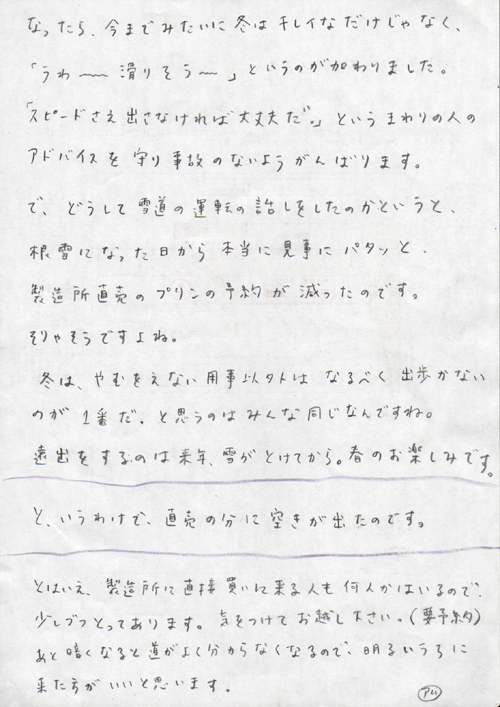 なったら、今までみたいに冬はキレイなだけじゃなく、
「うわ〜〜滑りそう〜」というのが加わりました。
「スピードさえ出さなければ大丈夫だ。」というまわりの人の
アドバイスを守り事故のないようがんばります。
で、どうして雪道の運転の話しをしたのかというと、
根雪になった日から本当に見事にパタッと、
製造所直売のプリンの予約が減ったのです。
そりゃそうですよね。
冬は、やむをえない用事以外はなるべく出歩かない
のが1番だ。と思うのはみんな同じなんですね。
遠出をするのは来年、雪がとけてから。春のお楽しみです。
と、いうわけで、直売の分に空きが出たのです。
とはいえ、製造所に直接買いに来る人も何人かはいるので、
少しづつとってあります。気をつけてお越し下さい。(要予約)
あと暗くなると道がよく分からなくなるので、明るいうちに
来た方がいいと思います。